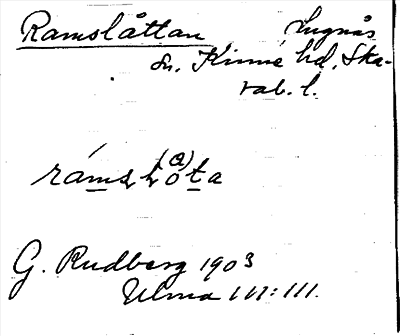 Ramslåttan Lugnås
sn. Kinne hd. Ska-
rab. l.
(a)
G. Rudberg 1903
Ulma 111:111.